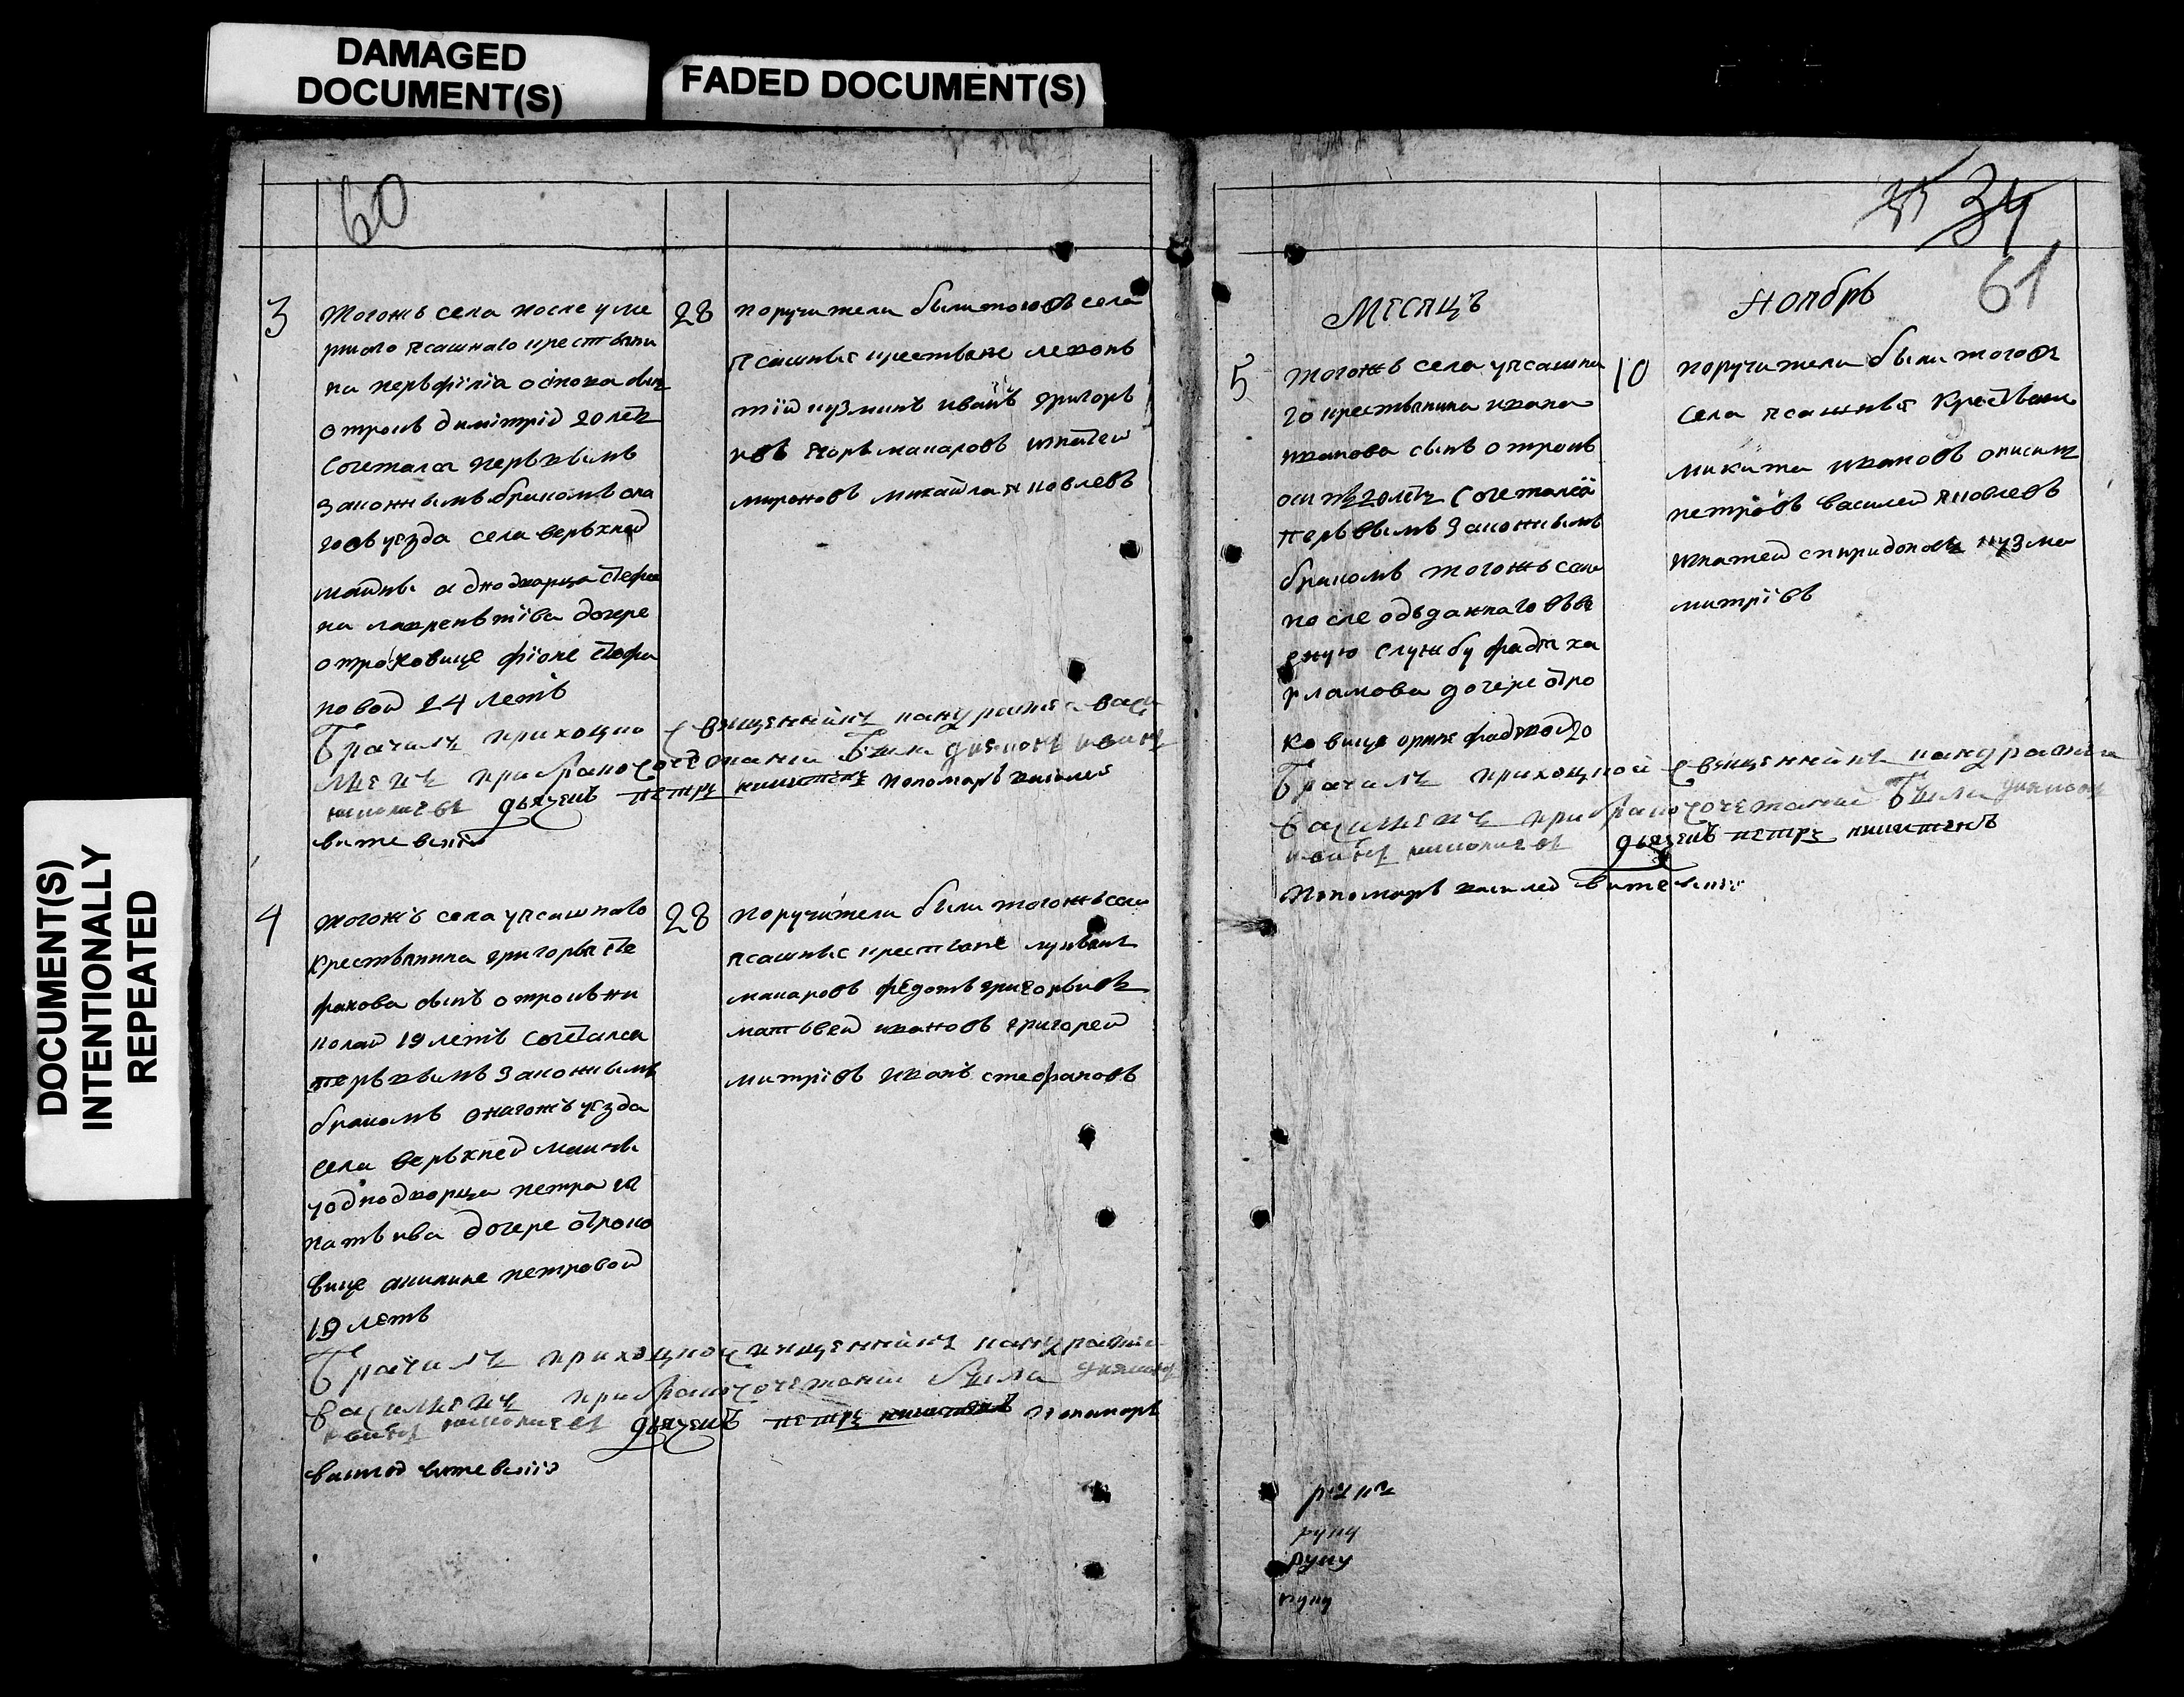 DAMAGED
DOCUMENT(S)
FADED DOCUMENT(S)
DOCUMENT(S)
INTENTIONALLY
REPEATED
60
3
тогожъ села после уме
ршаго ясашнаго крестьяни
на
отрокъ димітрій 20 летъ
сочетался первымъ
законнымъ бракомъ она
гожъ уезда села верьхней
маінъ однодворца стефа
на лаврентіва дочере
отроковице фіоне стефа
новой 24 летъ
28
поручители были тогожъ села
ясашные крестьяне леѡонъ
кузминъ иванъ григорь
евъ егоръ макаровъ игнатей
мироновъ михайла яковлевъ
Брачилъ приходцкой священникъ кандратей васи
льевъ при бракосочетаніи были диаконъ иванъ
дьячекъ петръ никитинъ пономарь василей
4
тогожъ села у ясашнаго
крестьянина григорья сте
фанова сынъ отрокъ ни
колай 19 летъ сочетался
первымъ законнымъ
бракомъ онагожъ уезда
села верьхней маинъ
у однодворца петра иг
натьива дочере отроко
вице акилине петровой
19 летъ
28
поручители были тогожъ села
ясашные крестьяне лукьянъ
макаровъ федотъ григорьивъ
матьвей ивановъ григорей
митріовъ иванъ стефановъ
Брачилъ приходцкой священникъ кандратей
васильевъ при бракосочетаніи были диаконъ
иванъ дьячекъ петръ никитинъ пономарь
василей
34
61
Месяцъ Ноябрь
5
тогожъ села у ясашна
го крестьянина ивана
иванова сынъ отрокъ
осипъ 20 летъ сочетался
перьвымъ законнымъ
бракомъ тогожъ села
после отъданнаго въво
енную службу фадея ха
рламова дочере отро
ковице орине фадевой 20
10
поручители были тогожъ
села ясашныя крестьяне
микита ивановъ анисимъ
петровъ василей яковлевъ
игнатей спиридоновъ кузма
митріовъ
Брачилъ приходцкой священникъ кандратей
васильевъ при бракосочетаніи были диаконъ
иванъ дьячекъ петръ никитинъ
пономарь василей
руку
руку